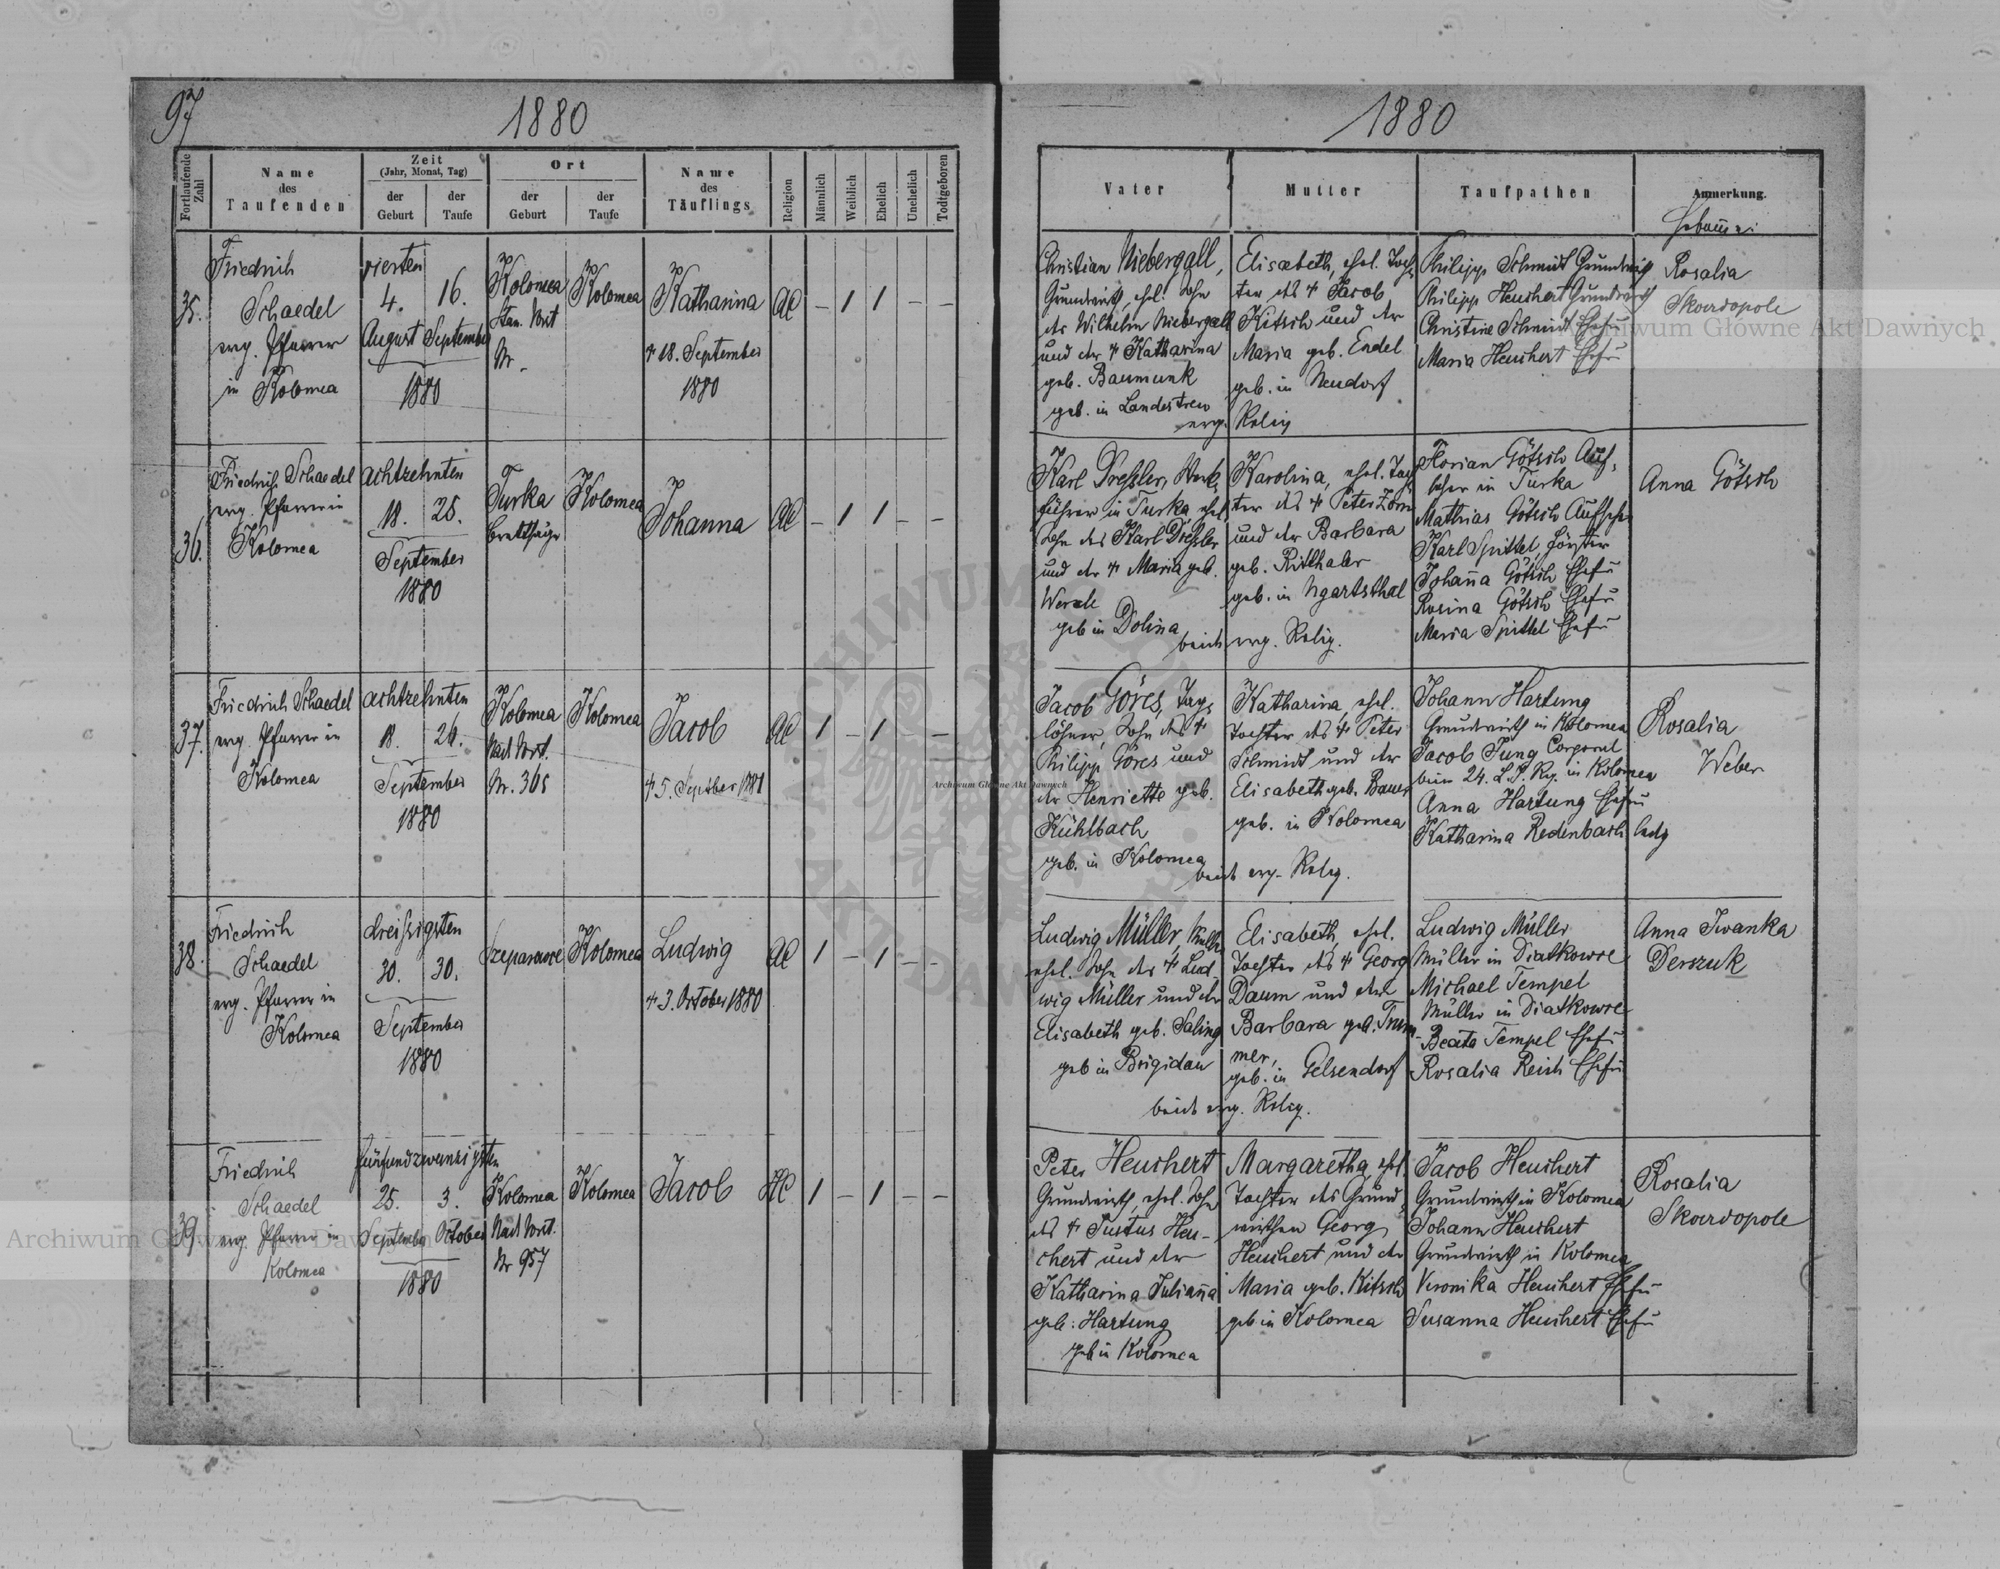 97
1880
1880
Fortlaufende Zahl
Name des Taufenden
Zeit
(Jahr, Monat, Tag)
der Geburt
der Taufe
Ort
der Geburt
der Taufe
Name des Täuflings
Religion
Männlich
Weiblich
Ehelich
Unehelich
Todtgeboren
Vater
Mutter
Taufpathen
Anmerkung.
35.
Friedrich
Schaedel
evg. Pfarrer
in Kolomea
vierten
4. 16.
August September
1880
Kolomea
Nr. -
Kolomea
Katharina
† 18. September
1880
AC - 1 1 - -
Christian Niebergall,
Grundwirth, ehel. Sohn
des Wilhelm Niebergall
und der † Katharina
geb. Baumunk
geb. in Landestreu
Elisabeth, ehel. Toch-
ter des † Jacob
Kitsch und der
Maria geb. Endel
geb. in Neudorf
evg. Relig
Philipp Schmidt Grundwirth
Philipp Heuchert Grundwirth
Christine Schmidt Ehefr
Maria Heuchert Ehefr
Rosalia
Skordopole
36.
Friedrich Schaedel
evg. Pfarrer in
Kolomea
achtzehnten
18. 25.
September
1880
Turka
Brettsäge
Kolomea
Johanna
AC - 1 1 - -
Karl Dressler, Werk-
führer in Turka ehel.
Sohn des Karl Dressler
und der † Maria geb.
geb in Dolina
Karolina, ehel. Toch-
ter des † Peter Zorn
und der Barbara
geb. Ritthaler
geb. in Ugartsthal
beide evg. Relig.
Florian Götsch Auf-
seher in Turka
Mathias Götsch Aufseher
Karl Spittel, Förster
Johanna Götsch Ehefr
Rosina Götsch Ehefr
Maria Spittel Ehefr
Anna Götsch
37.
Friedrich Schaedel
evg. Pfarrer in
Kolomea
achtzehnten
18. 26.
September
1880
Kolomea
Nad Vorst.
Nr. 365
Kolomea
Jacob
† 5. Septber 1881
AC 1 - 1 - -
Jacob Göres, Tag-
löhner, Sohn des †
Philipp Göres und
der Henriette geb.
Kühlbach
geb. in Kolomea
Katharina, ehel.
Tochter des † Peter
Schmidt und der
Elisabeth geb. Bauer
geb. in Kolomea
beide evg. Relig.
Johann Hartung
Grundwirth in Kolomea
Jacob Jung Corporal
beim 24. L.I. Rg. in Kolomea
Anna Hartung Ehefr
Katharina Redenbach ledg
Rosalia
Weber
38.
Friedrich
Schaedel
evg. Pfarrer in
Kolomea
dreissigsten
30. 30.
September
1880
Szeparowce
Kolomea
Ludwig
† 3. October 1880
AC 1 - 1 - -
Ludwig Müller, Müller
ehel. Sohn des † Lud-
wig Müller und der
Elisabeth geb. Saling
geb in Brigidau
Elisabeth, ehel.
Tochter des † Georg
Daum und der
Barbara geb. Trum-
mer,
geb. in Gelsendorf
beide evg. Relig.
Ludwig Müller
Müller in Diatkowce
Michael Tempel
Müller in Diatkowce
Beata Tempel Ehefr
Rosalia Reich Ehefr
Anna Iwanka
Derszuk
39.
Friedrich
Schaedel
evg. Pfarrer in
Kolomea
fünfundzwanzigsten
25. 3.
September October
1880
Kolomea
Nad Vorst.
Nr 957
Kolomea
Jacob
HC 1 - 1 - -
Peter Heuchert
Grundwirth, ehel. Sohn
des † Justus Heu-
chert und der
Katharina Julianna
geb: Hartung
geb in Kolomea
Margaretha, ehel.
Tochter des Grund-
wirthen Georg
Heuchert und der
Maria geb. Kitsch
geb in Kolomea
Jacob Heuchert
Grundwirth in Kolomea
Johann Heuchert
Grundwirth in Kolomea
Veronika Heuchert Ehefr
Susanna Heuchert Ehefr
Rosalia
Skordopole
Archiwum Główne Akt Dawnych
Archiwum Główne Akt Dawnych
Archiwum Główne Akt Dawnych